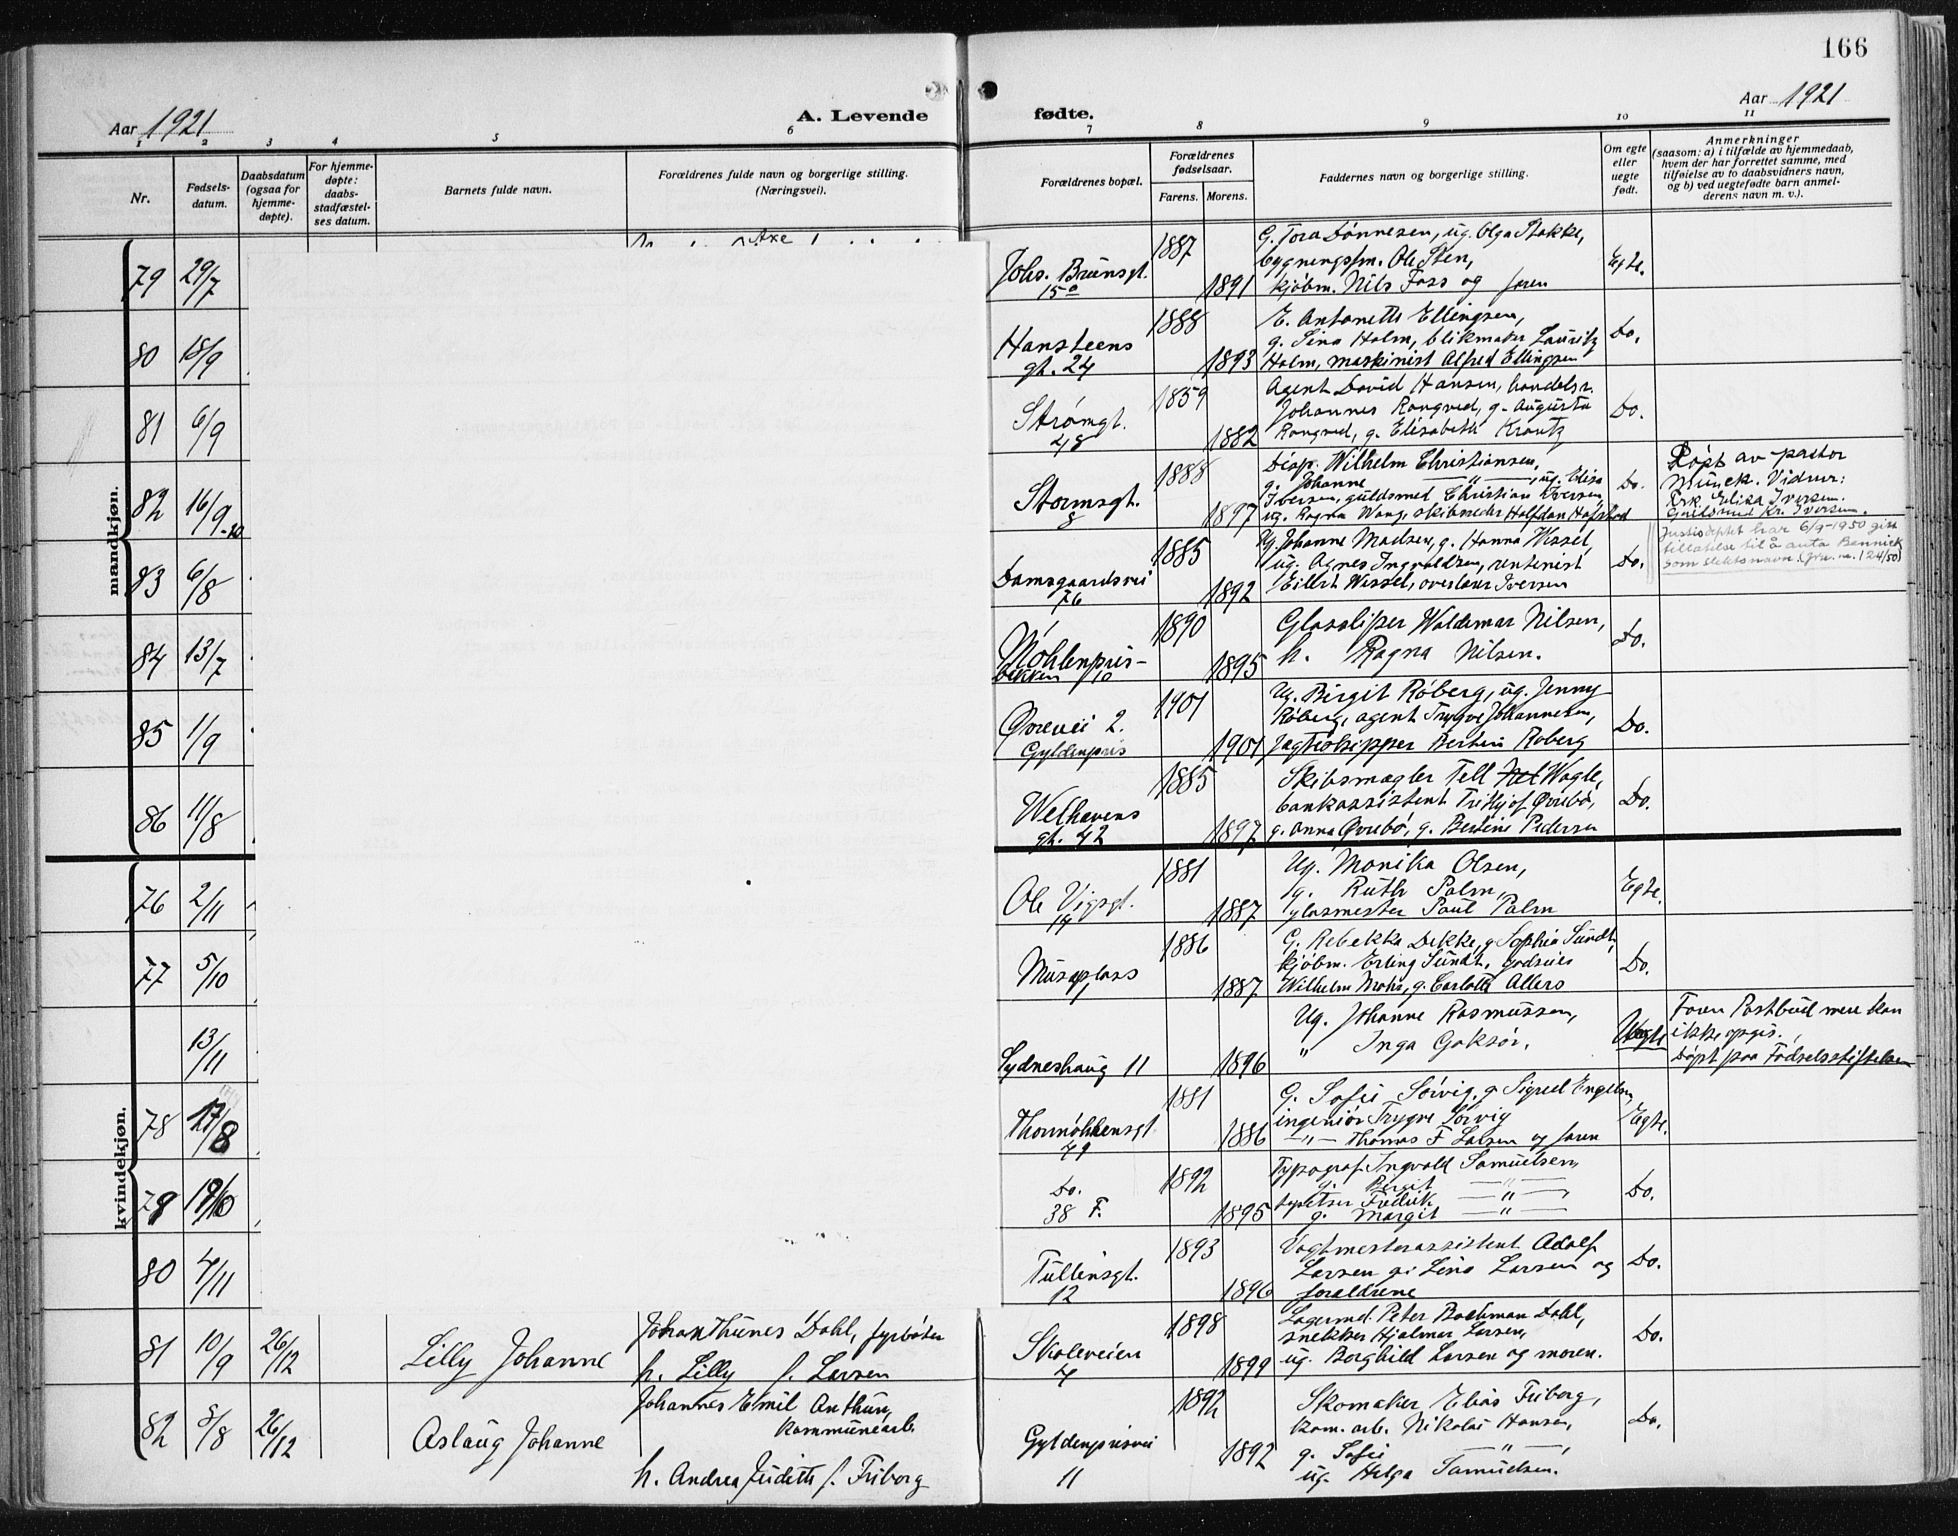 166
Aar 1921
A. Levende
fødte.
Aar 1921
1 2 3 4 5 6 7 8 9 10 11
Nr.
Fødsels-
datum.
Daabsdatum
(ogsaa for
hjemme-
døpte).
For hjemme-
døpte:
daabs-
stadfæstel-
ses datum.
Barnets fulde navn.
Forældrenes fulde navn og borgerlige stilling.
(Næringsvei).
Forældrenes bopæl.
Forældrenes
fødselsaar.
Farens. Morens.
Faddernes navn og borgerlige stilling.
Om egte
eller
uegte
født.
Anmerkninger
(saasom: a) i tilfælde av hjemmedaab,
hvem der har forrettet samme, med
tilføielse av to daabsvidners navn,
og b) ved uegtefødte barn anmel-
derens navn m. v.).
mandkjøn.
79 29/7
Johs. Brunsgt.
15a
1887
1891
G. Tora Dønnesen, ug. Olga Stokke,
bygningsfm. Ole Sten,
kjøbm. Nils Foss og faren
Egte.
80 18/9
Hansteens
gt. 24
1888
1893
E. Antonette Ellingsen,
g. Lina Holm, blikmaker Lauritz
Holm, maskinist Alfred Ellingsen
Do.
81 6/9
Strømgt.
48
1859
1882
Agent David Hansen, handelsr.
Johannes Rongved, g. Augusta
Rongved, g. Elisabeth Krantz
Do.
82 16/9-20
Stormsgt.
8
1888
1897
Disp. Wilhelm Christiansen,
g. Johanne —„—, ug. Elisa
Iversen, guldsmed Christian Iversen
ug. Ragna Wang, skibsreder Halfdan Hafstad
Do.
Døpt av pastor
Munck. Vidner:
Frk. Elisa Iversen.
Guldsmed Kr. Iversen.
83 6/8
Damsgaardsvei
76
1885
1892
Ug. Johanne Madsen, g. Hanna Wessel,
ug. Agnes Ingvaldsen, rentenist
Eilert Wessel, overlærer Iversen
Do.
Justisdeptet har 6/9-1950 gitt
tillatelse til å anta Bennick
som slektsnavn (jrn. nr. 124/50)
84 13/7
Møhlenpris-
bakken 10
1890
1895
Glassliper Waldemar Nilsen,
h. Ragna Nilsen.
Do.
85 1/9
Øvrevei 2.
Gyldenpris
1901
1901
Ug. Birgit Røberg, ug. Jenny
Røberg, agent Trygve Johannesen,
Jagteskipper Bertin Roberg
Do.
86 11/8
Welhavens
gt. 42
1885
1897
Skibsmægler Tell Wagle,
bankassistent Fritjof Øvrebø,
g. Anna Øvrebø, g. Bertine Pedersen
Do.
kvindekjøn.
76 2/11
Ole Vigsgt.
19
1881
1887
Ug. Monika Olsen,
g. Ruth Palm,
glasmester Paul Palm
Egte.
77 5/10
Museplass
1
1886
1887
G. Rebekka Dekke, g. Sophia Sundt,
kjøbm. Erling Sundt, godseier
Wilhelm Mohr, g. Carlotta Allers
Do.
13/11
Sydneshaug 11
1896
Ug. Johanne Rasmussen,
„ Inga Goksør.
Uegte
Faren Postbud mere kan
ikke opgis.
Døpt paa Fødselsstiftelsen
78 17/8
Thormøhlensgt.
49
1881
1886
G. Sofie Sørvig, g. Sigred Engelsen,
ingeniør Trygve Sørvig
—„— Thomas F Larsen og faren
Egte.
79 19/10
Do.
38 F.
1892
1895
Typograf Ingvald Samuelsen,
g. Birgit —„—
typetser Fredrik —„—
g. Margit —„—
Do.
80 4/11
Tullinsgt.
12
1893
1896
Vagtmesterassistent Adolf
Larsen g. Lina Larsen og
forældrene
Do.
81 10/9 26/12
Lilly Johanne
Johan Thunes Dahl, fyrbøter
h. Lilly f. Larsen
Skoleveien
4
1898
1899
Lagermd. Peter Bachman Dahl,
snekker Hjalmar Larsen,
ug. Borghild Larsen og moren.
Do.
82 8/8 26/12
Aslaug Johanne
Johannes Emil Anthun,
kommunearb.
h. Andrea Judith f. Friborg
Gyldenprisvei
11
1892
1892
Skomaker Elias Friborg,
kom. arb. Nikolai Hansen,
g. Sofie —„—,
ug. Helga Samuelsen.
Do.